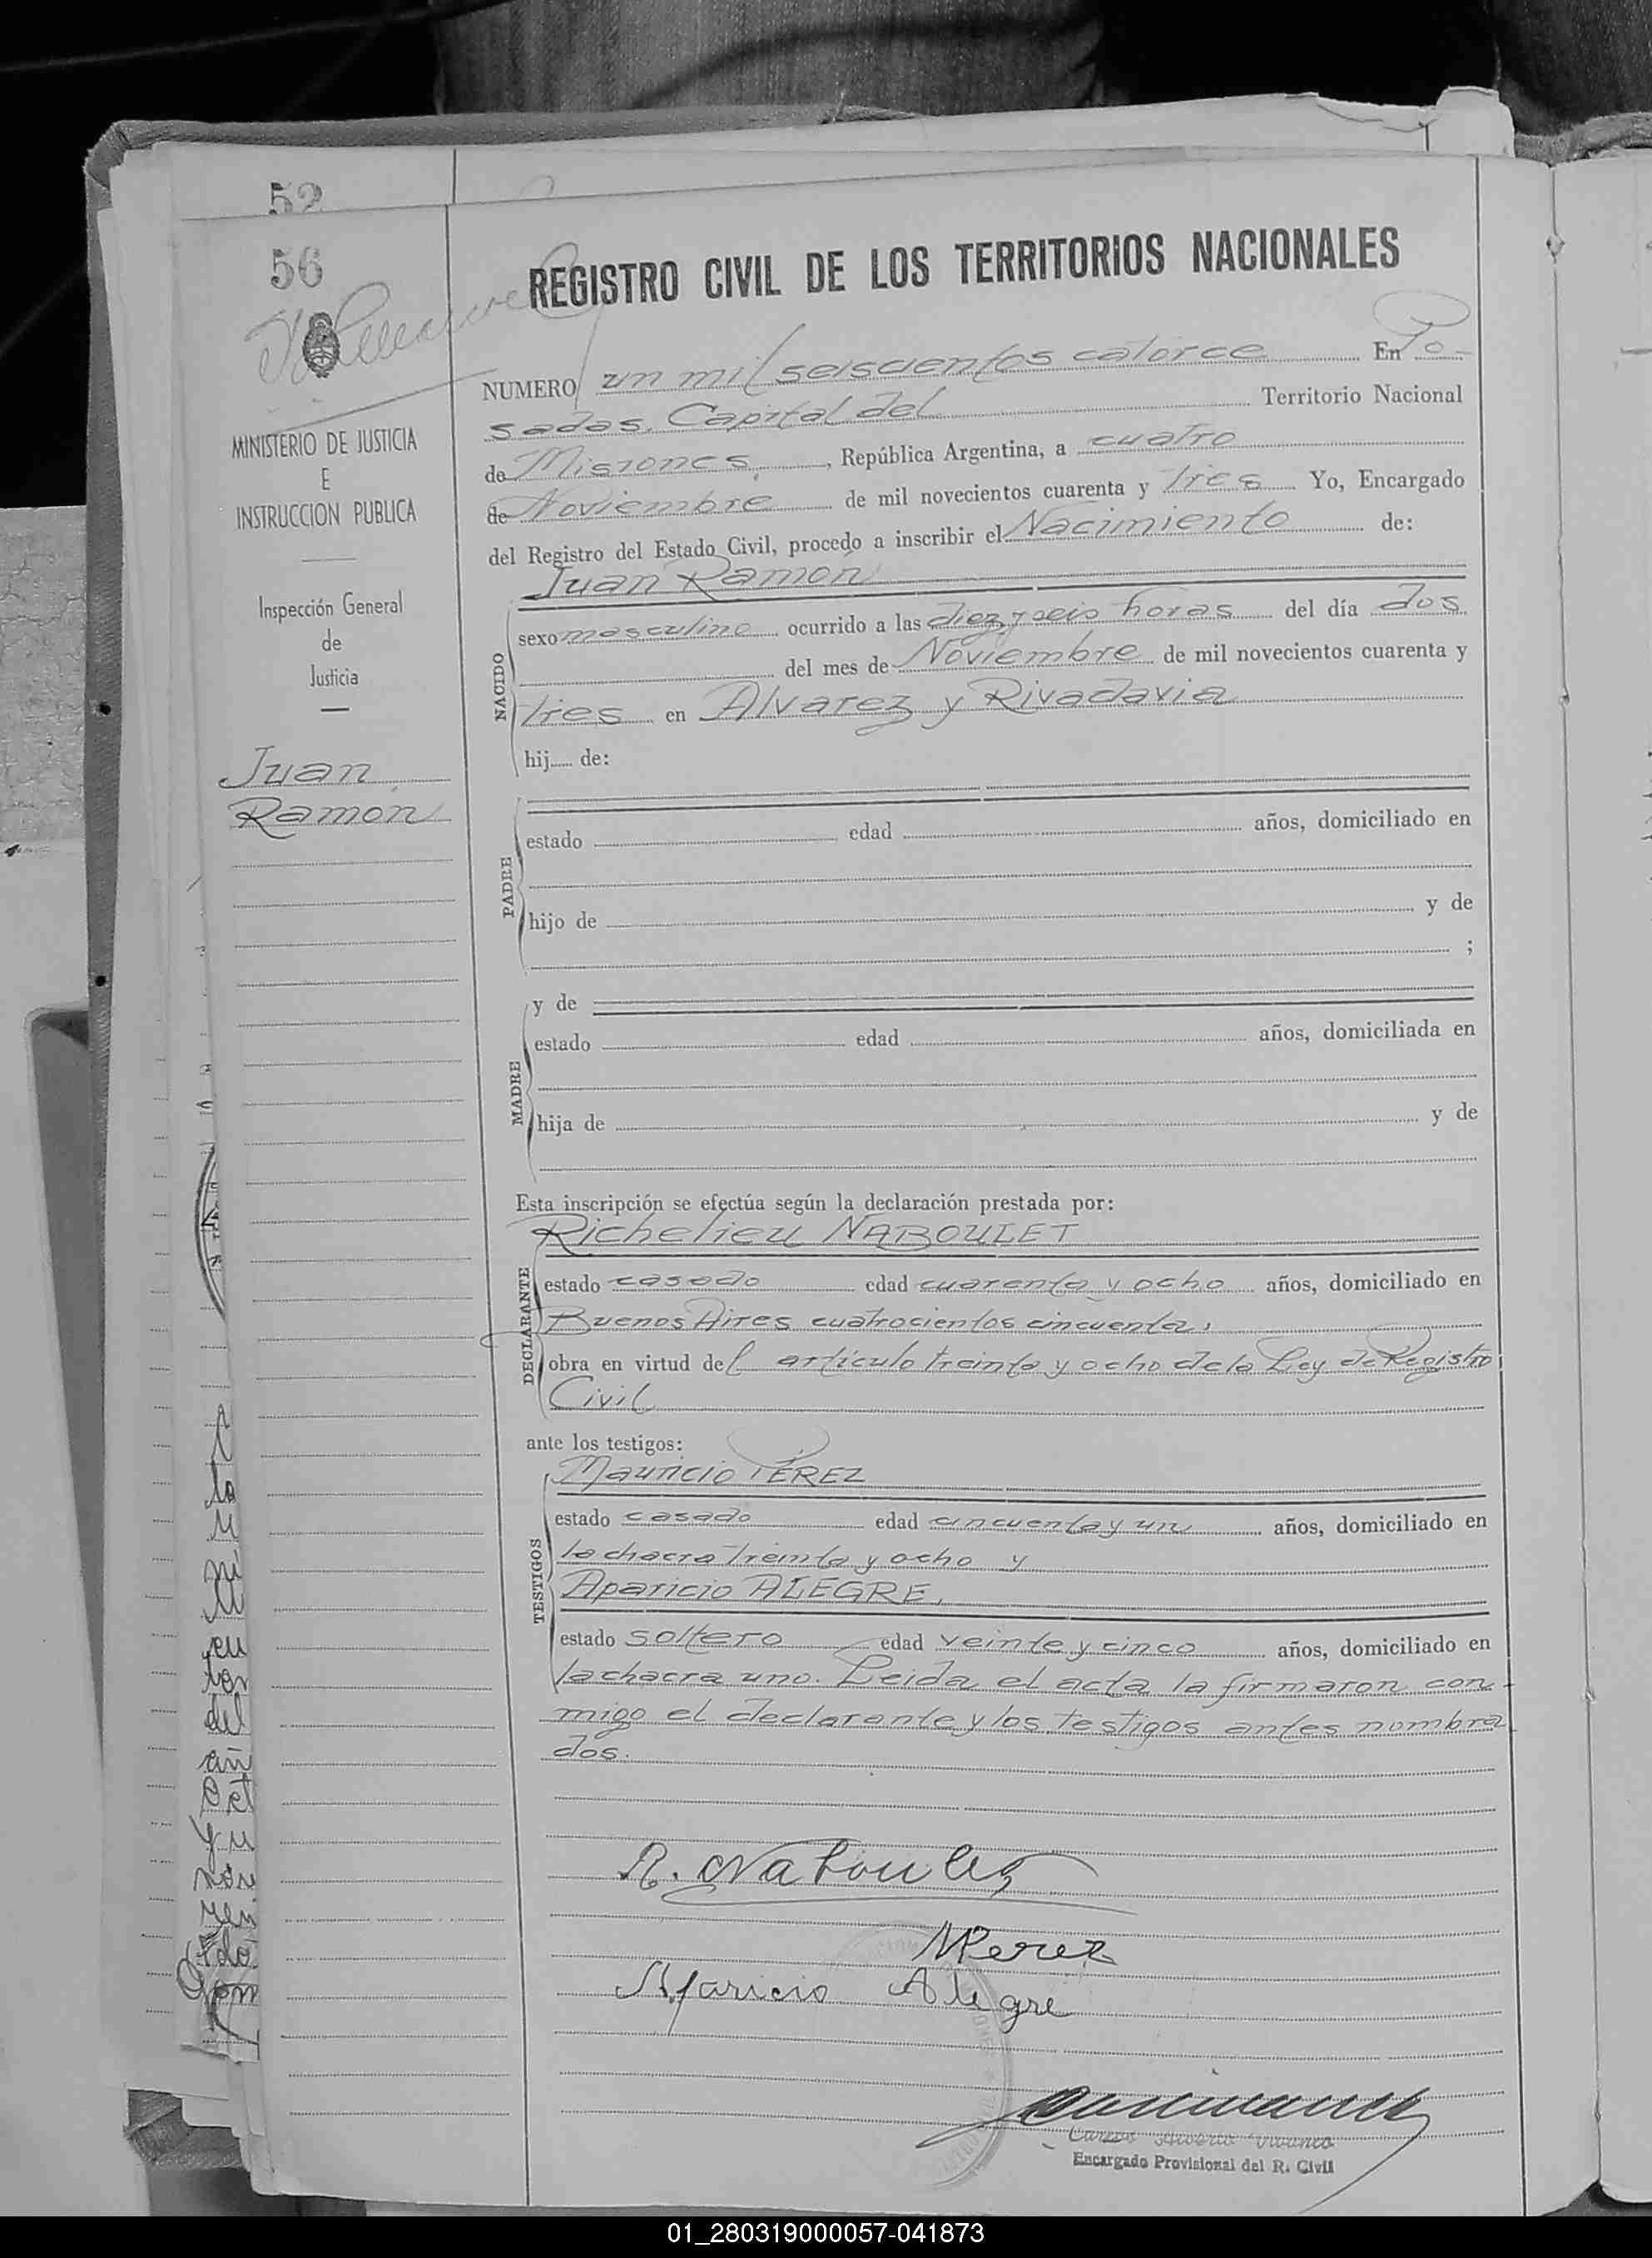 52
56
REGISTRO CIVIL DE LOS TERRITORIOS NACIONALES
NUMERO un mil seiscientos catorce En Po-
sadas, Capital del Territorio Nacional
de Misiones, República Argentina, a cuatro
de Noviembre de mil novecientos cuarenta y tres Yo, Encargado
del Registro del Estado Civil, procedo a inscribir el Nacimiento de:
MINISTERIO DE JUSTICIA
E
INSTRUCCION PUBLICA
Inspección General
de
Justicia
Juan
Ramón
NACIDO
Juan Ramón
sexo masculino ocurrido a las diez y seis horas del día dos
del mes de Noviembre de mil novecientos cuarenta y
tres en Alvarez y Rivadavia
hij de:
PADRE
estado edad años, domiciliado en
hijo de y de
;
MADRE
y de
estado edad años, domiciliada en
hija de y de
Esta inscripción se efectúa según la declaración prestada por:
DECLARANTE
Richelieu NABOULET
estado casado edad cuarenta y ocho años, domiciliado en
Buenos Aires cuatrocientos cincuenta,
obra en virtud del artículo treinta y ocho de la Ley de Registro
Civil
ante los testigos:
TESTIGOS
Mauricio PÉREZ
estado casado edad cincuenta y un años, domiciliado en
la chacra treinta y ocho y
Aparicio ALEGRE,
estado soltero edad veinte y cinco años, domiciliado en
la chacra uno. Leida el acta la firmaron con-
migo el declarante y los testigos antes nombra
dos.
R. Naboulet
MPerez
Aparicio Alegre
Encargado Provisional del R. Civil
01_280319000057-041873